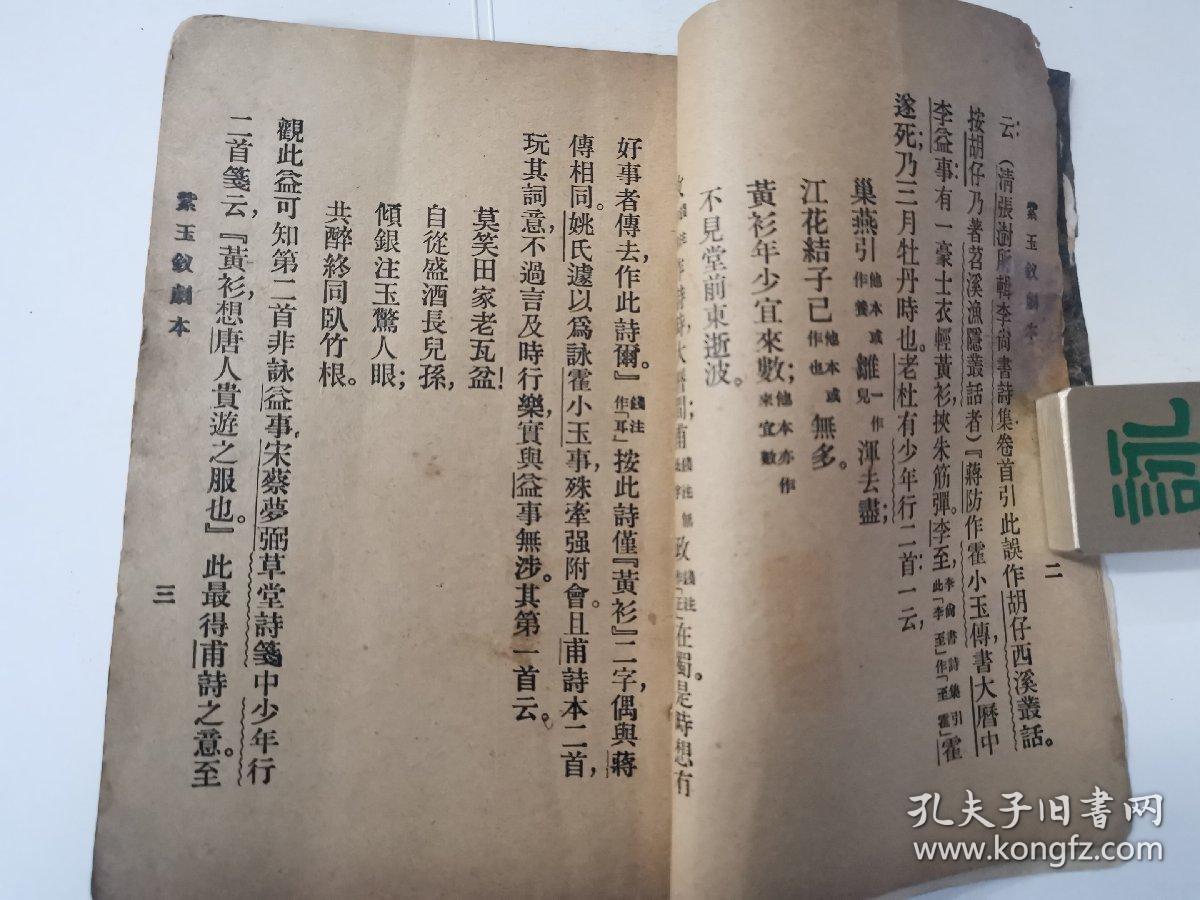 紫玉釵劇本
二
云：（清張澍所輯李尚書詩集卷首引此誤作胡仔西溪叢話。
按胡仔乃著苕溪漁隱叢話者）『蔣防作霍小玉傳，書大曆中
李益事：有一豪士衣輕黃衫，挾朱筋彈。李至，李尚書詩集引此「李至」作「至霍」霍
遂死；乃三月牡丹時也。老杜有少年行二首：一云，
巢燕引他本或作養雛一作兒渾去盡；
江花結子已他本或作也無多。
黃衫年少宜來數；他本亦作來宜數
不見堂前東逝波。
在蜀。是時想有
好事者傳去，作此詩爾。』錢注作「耳」按此詩僅『黃衫』二字，偶與蔣
傳相同。姚氏遽以爲詠霍小玉事，殊牽强附會。且甫詩本二首，
玩其詞意，不過言及時行樂，實與益事無涉。其第一首云。
莫笑田家老瓦盆！
自從盛酒長兒孫，
傾銀注玉驚人眼；
共醉終同臥竹根。
觀此益可知第二首非詠益事。宋蔡夢弼草堂詩箋中少年行
二首箋云，『黃衫，想唐人貴遊之服也。』此最得甫詩之意。至
紫玉釵劇本
三
孔夫子旧书网
www.kongfz.com